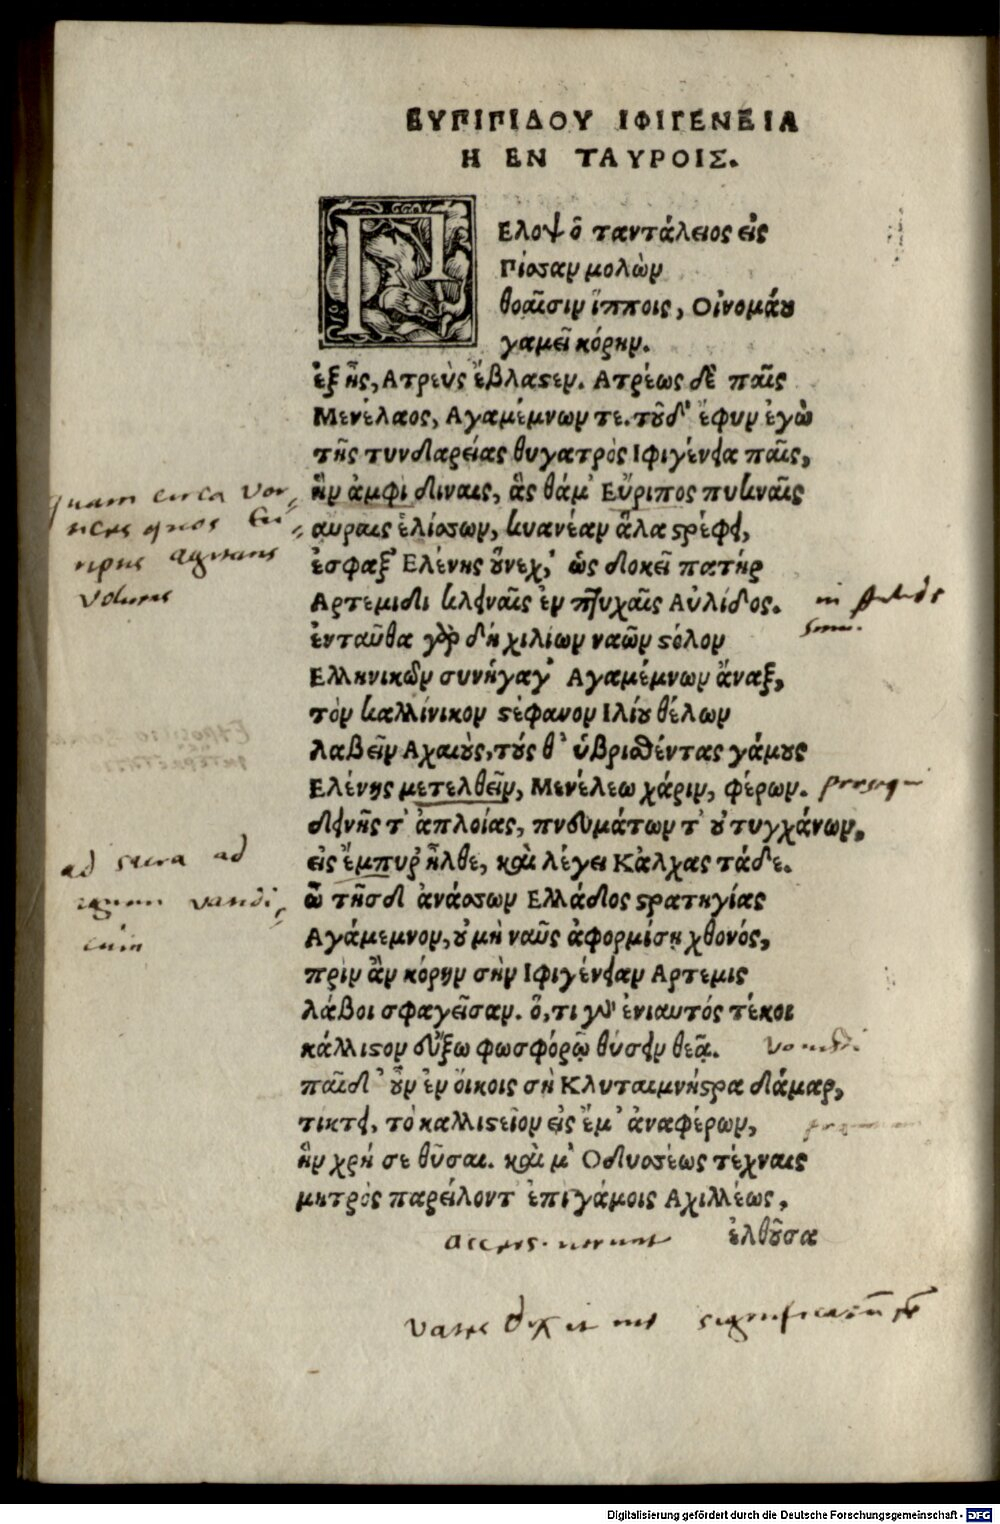 ΕΥΡΙΠΙΔΟΥ ΙΦΙΓΕΝΕΙΑ
Η ΕΝ ΤΑΥΡΟΙΣ.
ΠΕλοψ ὁ ταντάλειος εἰς
Πίσσαν μολὼν
θοαῖσιν ἵπποις, Οἰνομάου
γαμεῖ κόρην.
ἐξ ἧς, Ατρεὺς ἔβλαστεν. Ατρέως δὲ παῖς
Μενέλαος, Αγαμέμνων τε. τοῦδ' ἔφυν ἐγὼ
τῆς τυνδαρείας θυγατρὸς Ιφιγένεια παῖς,
ἣν ἀμφὶ δίναις, ἃς θάμ' Εὔριπος πυκναῖς
αὔραις ἑλίσσων, κυανέαν ἅλα στρέφει,
ἔσφαξ' Ελένης οὕνεχ', ὡς δοκεῖ πατὴρ
Αρτεμιδι κλειναῖς ἐν πτυχαῖς Αὐλίδος.
ἐνταῦθα γὰρ δὴ χιλίων ναῶν στόλον
Ελληνικῶν συνήγαγ' Αγαμέμνων ἄναξ,
τὸν καλλίνικον στέφανον Ιλίου θέλων
λαβεῖν Αχαιοὺς, τούς θ' ὑβρισθέντας γάμους
Ελένης μετελθεῖν, Μενέλεω χάριν, φέρων.
δεινῆς τ' ἀπλοίας, πνευμάτων τ' οὐ τυγχάνων,
εἰς ἔμπυρ' ἦλθε, καὶ λέγει Κάλχας τάδε.
ὦ τῆσδ' ἀνάσσων Ελλάδος στρατηγίας
Αγάμεμνον, οὐ μὴ ναῦς ἀφορμίσῃ χθονός,
πρὶν ἂν κόρην σὴν Ιφιγένειαν Αρτεμις
λάβοι σφαγεῖσαν. ὅ,τι γὰρ ἐνιαυτός τέκοι
κάλλιστον εὔξω φωσφόρῳ θύσειν θεᾷ.
παῖδ' οὖν ἐν οἴκοις σὴ Κλυταιμνήστρα δάμαρ,
τίκτει, τὸ καλλιστεῖον εἰς ἔμ' ἀναφέρων,
ἣν χρή σε θῦσαι. καὶ μ' Οδυσσέως τέχναις
μητρὸς παρείλοντ' ἐπὶ γάμοις Αχιλλέως.
ἐλθοῦσα
quam circa vor
tices quos Eu
ripus agitans
voluens
ad sacra ad
ignem
Digitalisierung gefördert durch die Deutsche Forschungsgemeinschaft - DFG